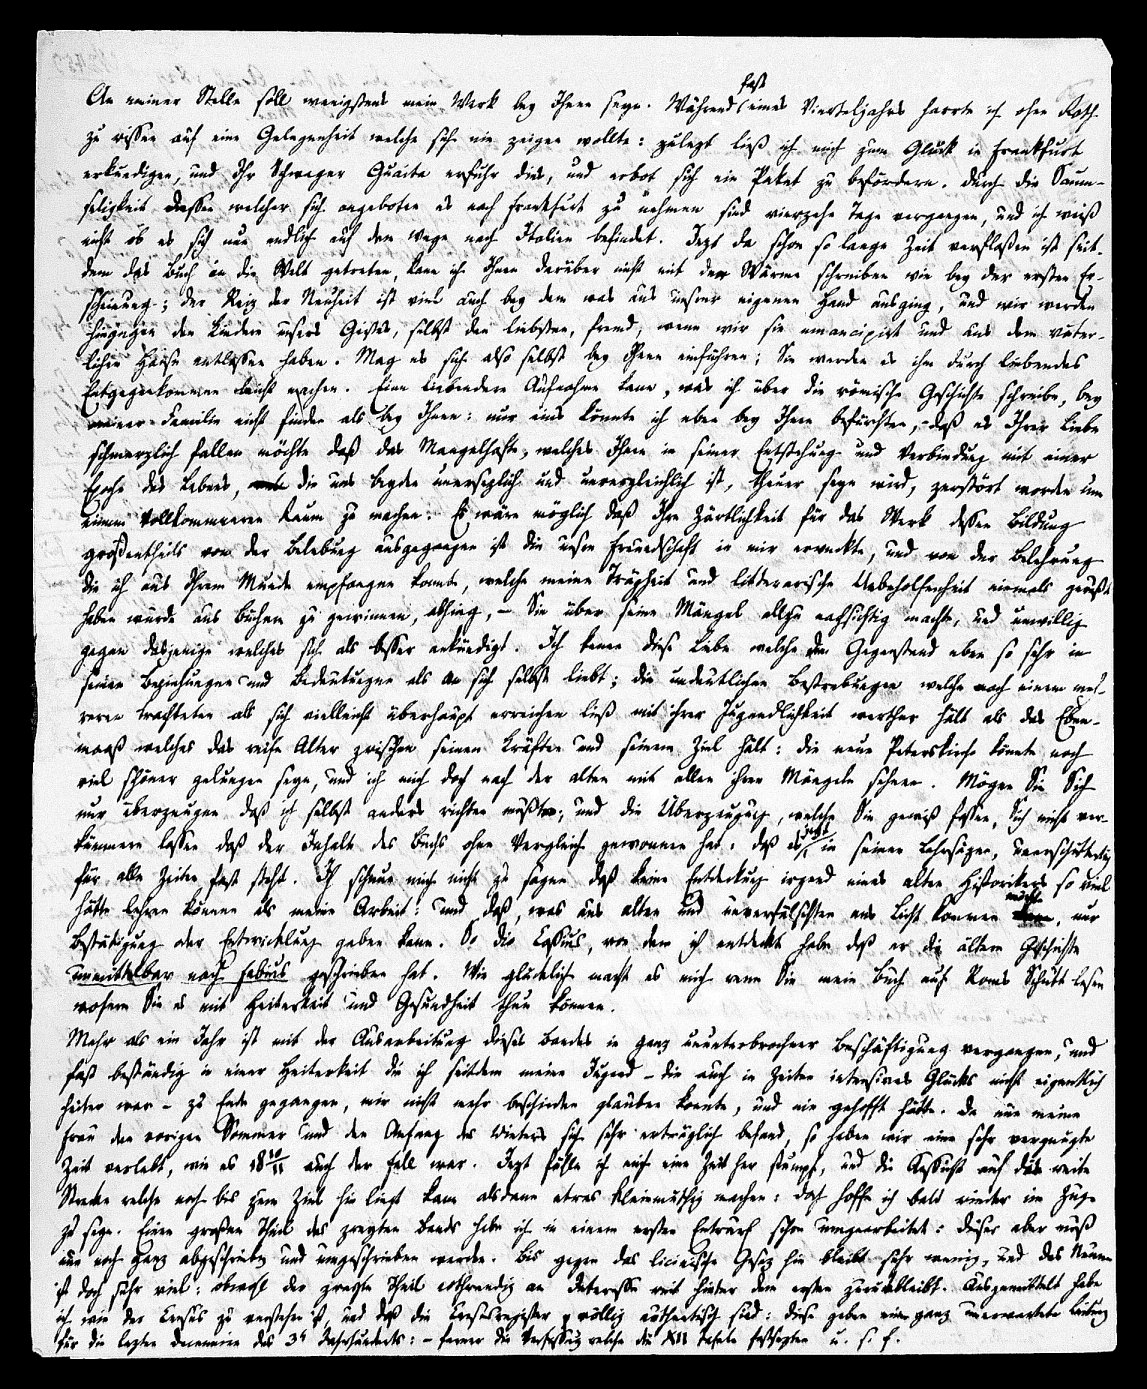 fast
An meiner Stelle soll wenigstens mein Werk bey Ihnen seyn. Während eines Vierteljahrs harrte ich ohne Rath
zu wissen auf eine Gelegenheit welche sich nie zeigen wollte: zulezt ließ ich mich zum Glück in Frankfurt
erkundigen, und Ihr Schwager Guaita erfuhr dies, und erbot sich ein Paket zu befördern. Durch die Saum-
seligkeit dessen welcher sich angeboten es nach Frankfurt zu nehmen sind vierzehn Tage vergangen, und ich weiß
nicht ob es sich nun endlich auf dem Wege nach Italien befindet. Jezt da schon so lange Zeit verflossen ist seit-
dem das Buch in die Welt getreten, kann ich Ihnen darüber nicht mit der Wärme schreiben wie bey der ersten Er-
scheinung: der Reiz der Neuheit ist viel auch bey dem was aus unsrer eigenen Hand ausging, und wir werden
hingegen den Kindern unsers Geistes, selbst den liebsten, fremd, wenn wir sie emancipirt und aus dem väter-
lichen Hause entlassen haben. Mag es sich also selbst bey Ihnen einführen; Sie werden es ihm durch liebendes
Entgegenkommen leicht machen. Eine liebendere Aufnahme kann, was ich über die römische Geschichte schreibe, bey
meiner Familie nicht finden als bey Ihnen: nur eins könnte ich eben bey Ihnen befürchten, daß es Ihrer Liebe
schmerzlich fallen möchte daß das Mangelhafte, welches Ihnen in seiner Entstehung und Verbindung mit einer
Epoche des Lebens, die uns beyden unersezlich und unvergleichlich ist, theuer seyn wird, zerstört worden um
einem vollkommneren Raum zu machen. Es wäre möglich daß Ihre Zärtlichkeit für das Werk dessen Bildung
großentheils von der Belebung ausgegangen ist die unsre Freundschaft in mir erweckte, und von der Belehrung
die ich aus Ihrem Munde empfangen konnte, welche meine Trägheit und litterarische Unbeholfenheit niemals gewußt
haben würde aus Büchern zu gewinnen, abhing, – Sie über seine Mängel allzu nachsichtig machte, und unwillig
gegen dasjenige welches sich als besser ankündigt. Ich kenne diese Liebe welche den Gegenstand eben so sehr in
seinen Beziehungen und Bedeutungen als an sich selbst liebt; die undeutlichen Bestrebungen welche nach einem meh-
reren trachteten als sich vielleicht überhaupt erreichen ließ mit ihrer Jugendlichkeit werther hält als das Eben-
maaß welches das reife Alter zwischen seinen Kräften und seinem Ziel hält: die neue Peterskirche könnte noch
viel schöner gelungen seyn, und ich mich doch nach der alten mit allen ihren Mängeln sehnen. Mögen Sie Sich
nur überzeugen daß ich selbst anders richten mußte; und die Überzeugung, welche Sie gewiß fassen, Sich nicht ver-
kümmern lassen daß der Inhalt des Buchs ohne Vergleich gewonnen hat: daß es jezt in seinen Lehrsäzen, unerschütterlich
für alle Zeiten fest steht. Ich scheue mich nicht zu sagen daß keine Entdeckung irgend eines alten Historikers so viel
hätte lehren können als meine Arbeit: und daß, was aus alten und unverfälschten ans Licht kommen möchte, nur
Bestätigung oder Entwickelung geben kann. So Dio Cassius, von dem ich entdeckt habe daß er die ältere Geschichte
unmittelbar nach Fabius geschrieben hat. Wie glücklich macht es mich wenn Sie mein Buch auf Roms Schutt lesen
wofern Sie es mit Heiterkeit und Gesundheit thun können.
Mehr als ein Jahr ist mit der Ausarbeitung dieses Bandes in ganz ununterbrochner Beschäftigung vergangen, und
fast beständig in einer Heiterkeit die ich seitdem meine Jugend – die auch in Zeiten intensives Glücks nicht eigentlich
heiter war – zu Ende gegangen, mir nicht mehr beschieden glauben konnte, und nie gehofft hätte. Da nun meine
Frau den vorigen Sommer und den Anfang des Winters sich sehr erträglich befand, so haben wir eine sehr vergnügte
Zeit verlebt, wie es 1810/11 auch der Fall war. Jezt fühle ich mich eine Zeit her stumpf, und die Aussicht auf die weite
Strecke welche noch bis zum Ziel hin liegt kann alsdann etwas kleinmüthig machen: doch hoffe ich bald wieder im Zuge
zu seyn. Einen großen Theil des zweyten Bands habe ich in einem ersten Entwurf schon umgearbeitet: dieser aber muß
nun noch ganz abgeschrieben und umgeschrieben werden. Bis gegen das licinische Gesez hin bleibt sehr wenig, und des Neuen
ist doch sehr viel: obwohl der zweyte Theil nothwendig an Interesse weit hinter dem ersten zurückbleibt. Ausgemittelt habe
ich, wie der Census zu verstehen ist, und daß die Censusregister völlig authentisch sind: diese geben eine ganz unerwartete Leitung
für die lezten Decennien des 3n Jahrhunderts: – ferner die Verfassung welche die XII Tafeln festsezten u. s. f.